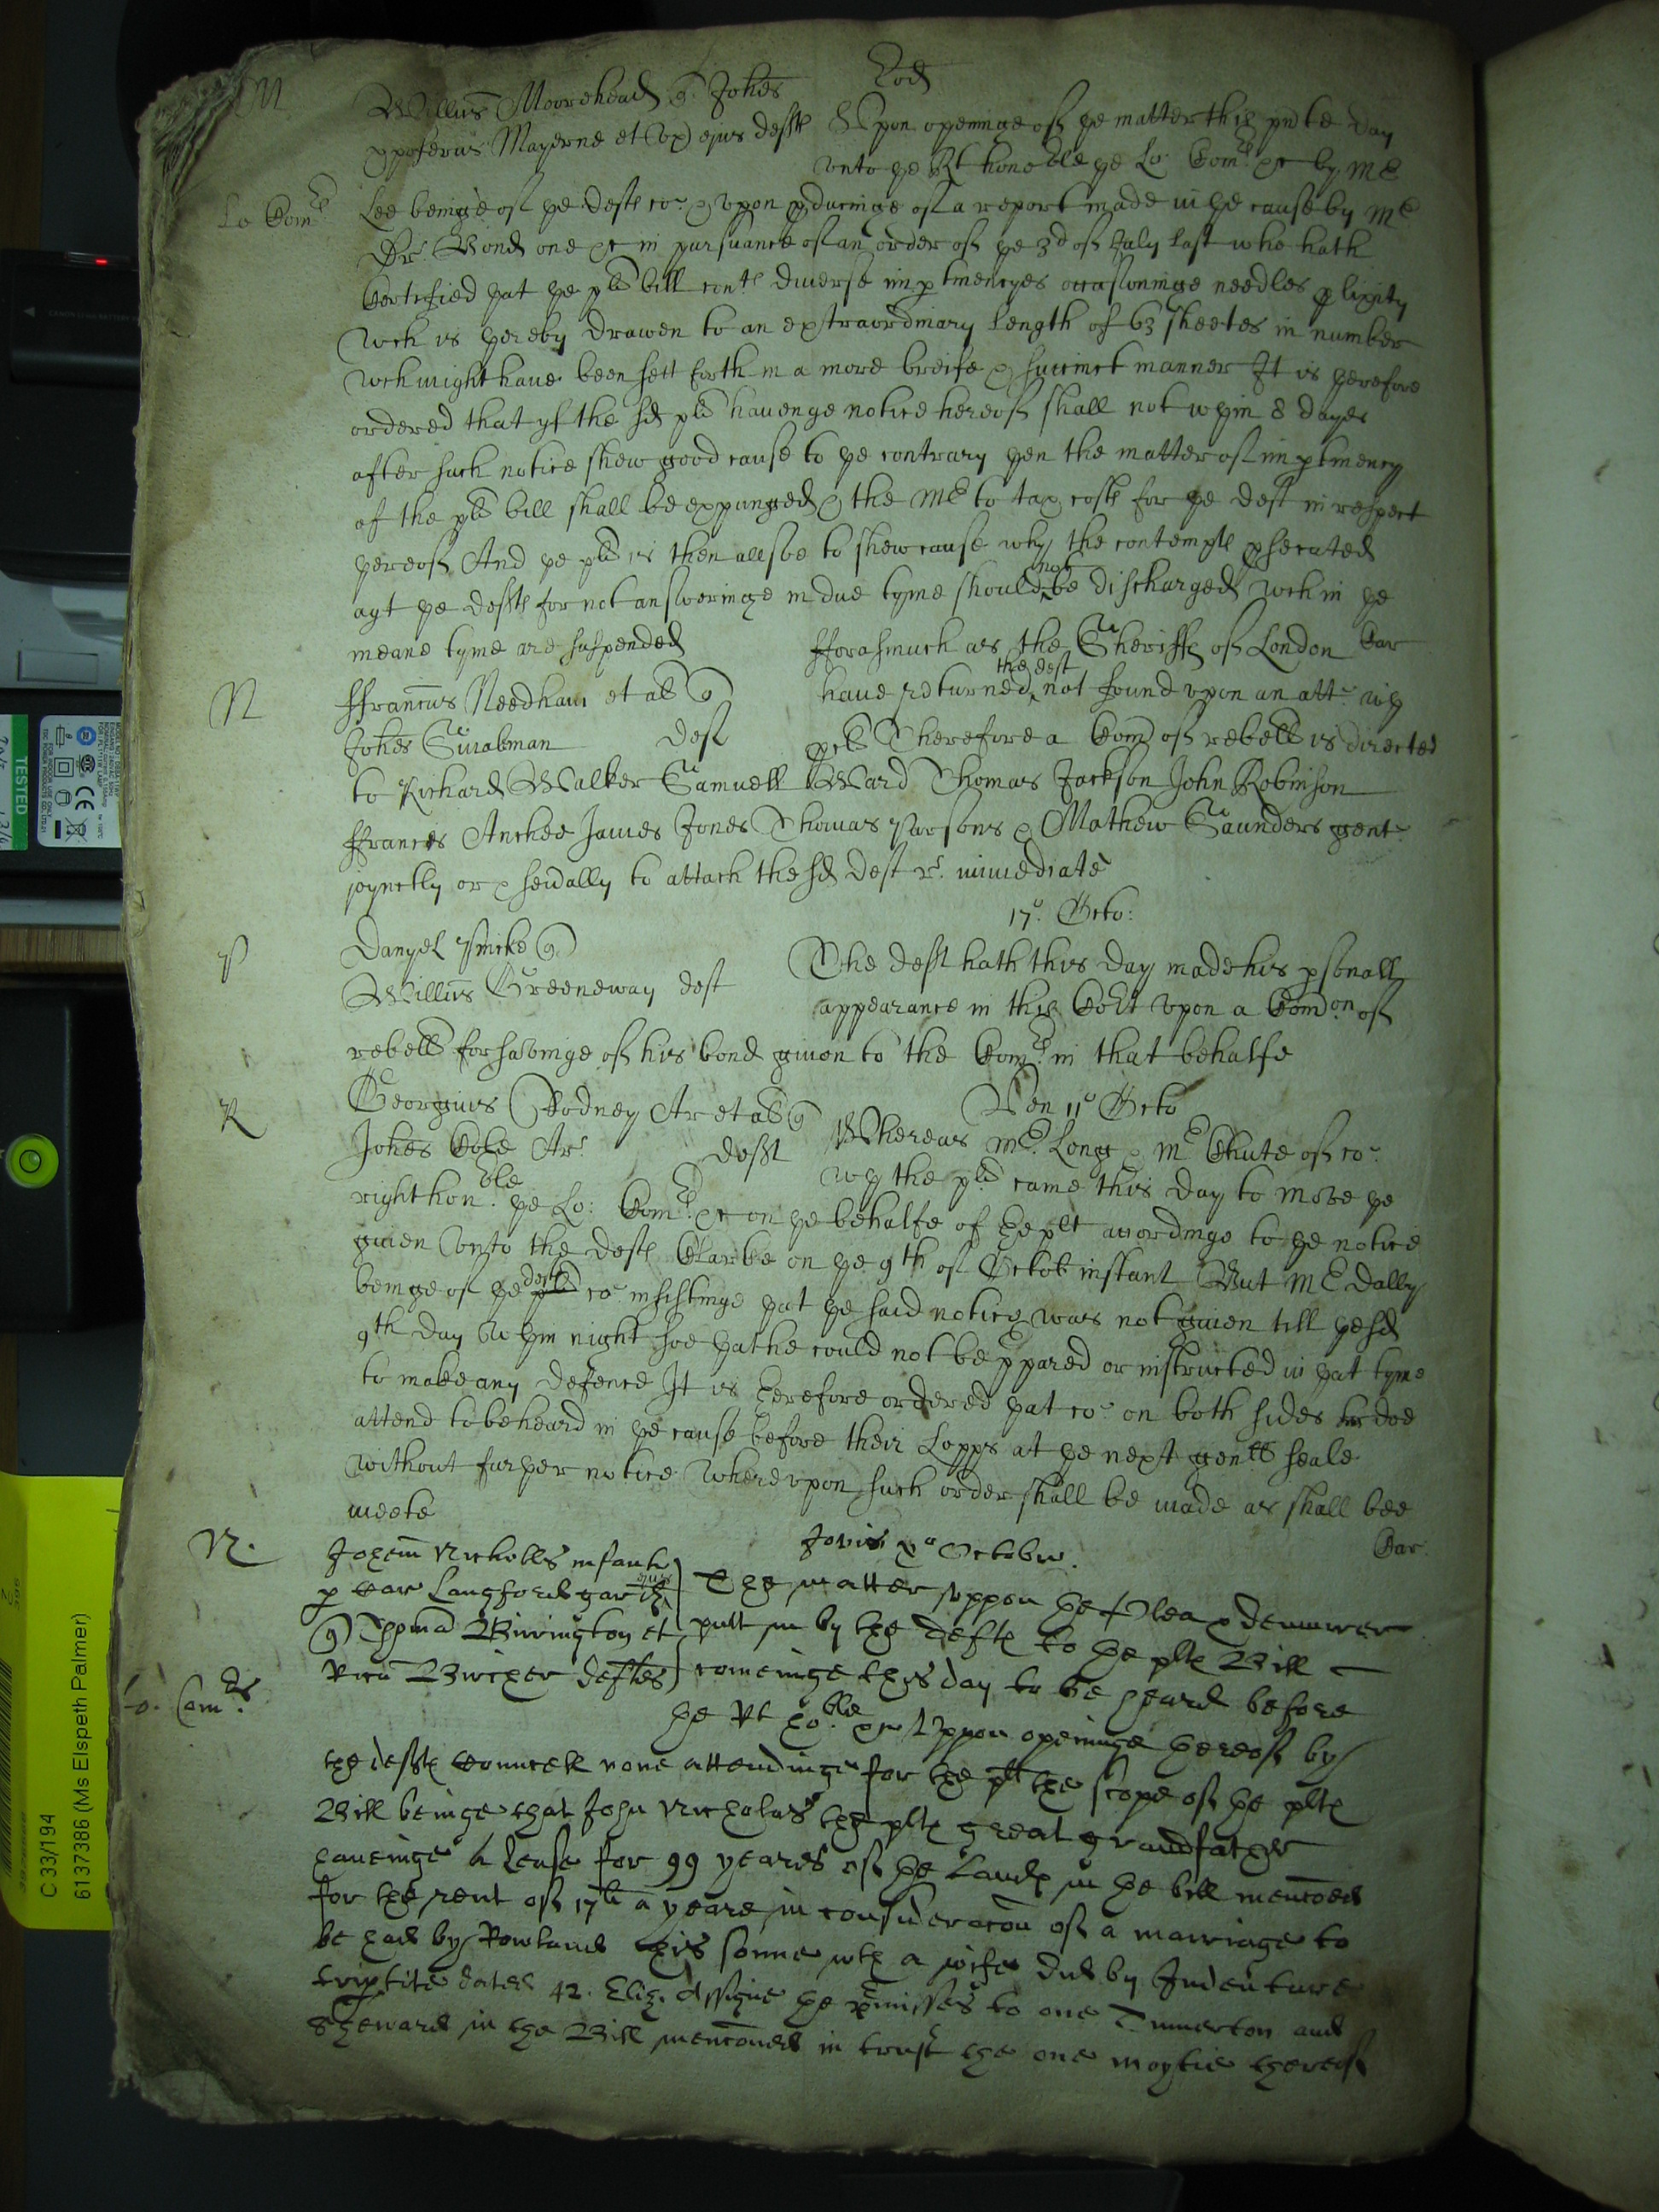 M
Eod
Willus Moorehead q Johes
xpoferus Mayerne et ux ejus defts
Upon openinge of ye matter this pnte day
unto ye Rt honoble ye Lo: Comrs &c by Mr
Lo Comrs
Lee beinge of ye defts co: & upon pducinge of a report made in ye cause by Mr
Dr Bond one &c in pursuance of an order of ye 3d of July last who hath
Certified yat ye plts bill cont diverse impertinencyes occasioninge needles plixity
wch is yereby drawen to an extraordinary length of 63 sheetes in number
wch might have been sett forth in a more breife & succinct manner It is yerefore
ordered that yf the sd plt havenge notice hereof shall not wthin 8 dayes
after such notice shew good cause to ye contrary yen the matter of impertinency
of the plts bill shall be expunged & the Mr to tax costs for ye deft in respect
yereof And ye plt is then allsoe to shew cause why the contempts psecuted
agt ye defts for not answeringe in due tyme should not be discharged wch in ye
meane tyme are suspended
N
ffrancus Needham et al q
Johes Swabman deft
fforasmuch as the Sheriffs of London
Car
have returned the deft not found upon an att wth
pcls Therefore a Com of rebell is directed
to Richard Walker Samuell Ward Thomas Jackson John Robinson
ffrances Anthee James Jones Thomas Parsons & Mathew Saunders gent
joynctly or severally to attach the sd deft r. immediate
17o Octo:
P
Danyel Pincke q
Willus Greeneway deft
The deft hath this day made his psonall
appearance in this Cort upon a Comon of
rebell for savinge of his bond given to the Comrs in that behalfe
R
Georgius Rodney Ar et al q
Johes Cole Ar deft
Ven 11o Octo
Whereas Mr Long & Mr Chute of co:
wth the plt came this day to move ye
right honble ye Lo: Comrs &c on ye behalfe of ye plt accordinge to ye notice
given unto the defts Clarke on ye 9th of Octob instant But Mr Dalby
beinge of ye defts co: insistinge yat ye said notice was not given till ye sd
9th day wthin night soe yat he could not be ppared or instructed in yat tyme
to make any defence It is yerefore ordered yat co: on both sides doe
attend to be heard in ye cause before their Lopps at ye next genll seale
without furyer notice whereupon such order shall be made as shall bee
meete
N.
Johem Nicholls infant
p Car Langford gard
q Thoma Birrington et
Ricu Bricher deftes
Jovis xo Octobr.
Car.
The matter uppon ye Plea & demurrer
putt in by the defts to ye plts Bill
comeinge this day to be heard before
Lo: Comrs
ye Rt hoble &c Uppon openinge yereof by
the defts councell none attendinge for the plt the scope of ye plts
Bill beinge that John Nicholas the plts great grandfather
haveinge a lease for 99 yeares of ye Lands in ye bill menconed
for the rent of 17li a yeare in consideracon of a marriage to
be had by Rowland his sonne wth a wife did by Indenture
tripitite dated 42. Eliz. assigne ye pmisses to one Tunnerton and
Sheward in the Bill menconed in trust the one moytie thereof
C 33/194
6137386 (Ms Elspeth Palmer)
TESTED